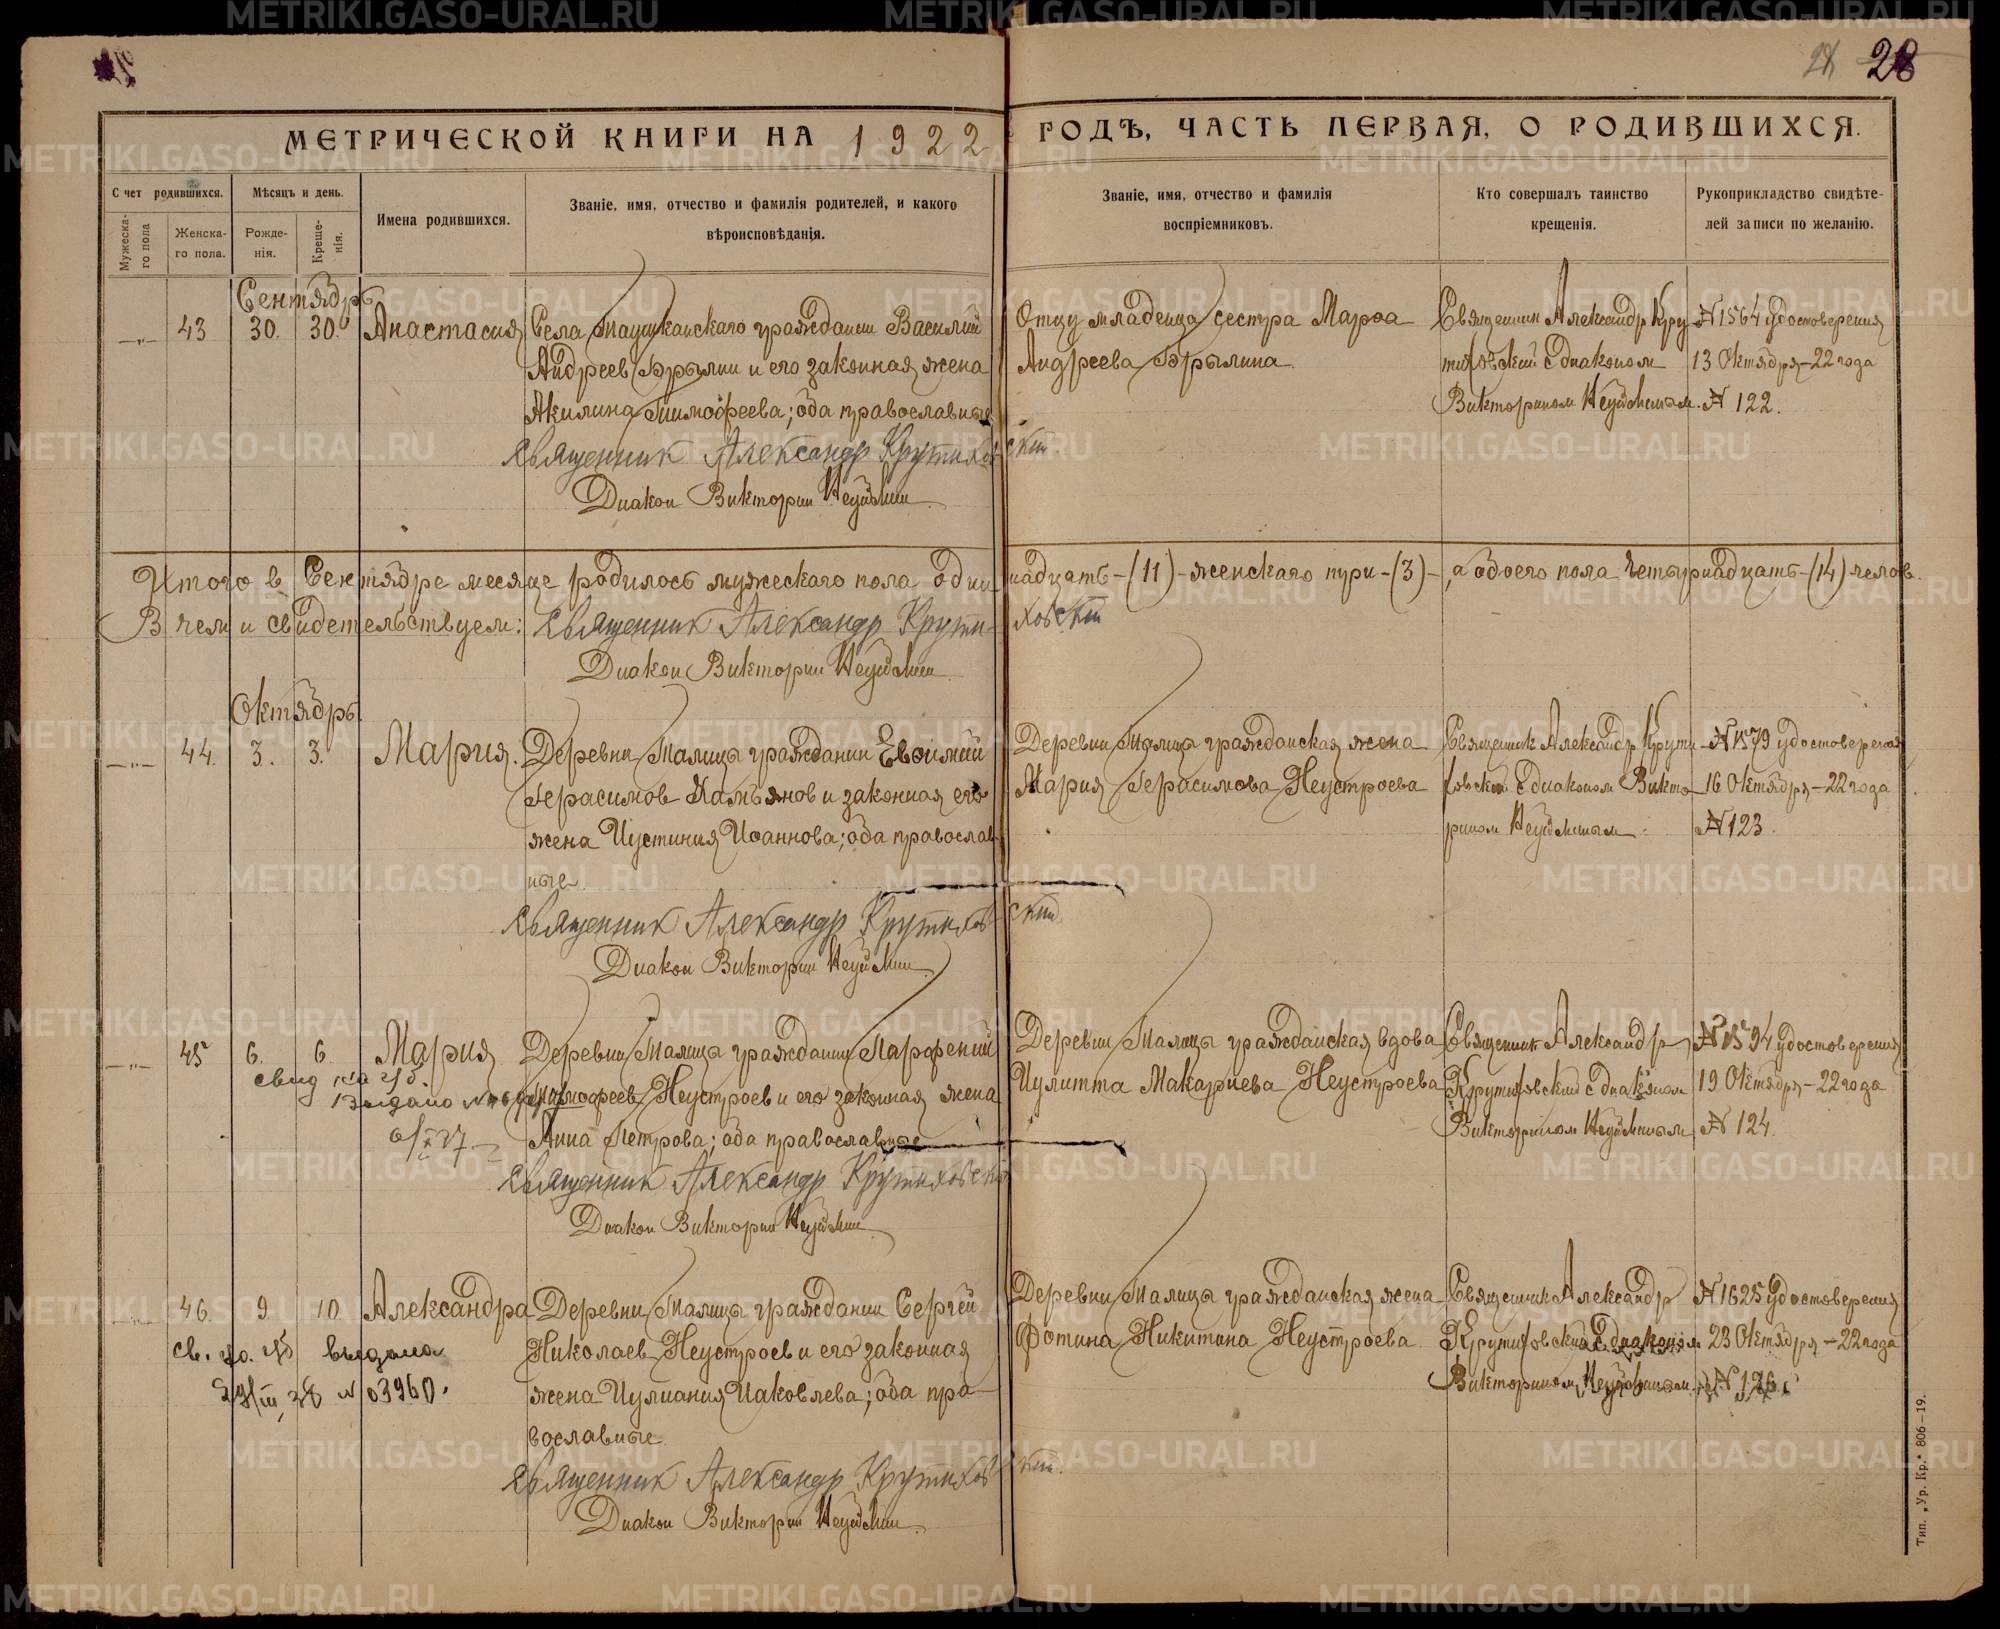 28
МЕТРИЧЕСКОЙ КНИГИ НА 1922 ГОДЪ, ЧАСТЬ ПЕРВАЯ, О РОДИВШИХСЯ.
Счет родившихся.
Мужеска-
го пола
Женска-
го пола.
Мѣсяцъ и день.
Рожде-
нія.
Креще-
нія.
Имена родившихся.
Званіе, имя, отчество и фамилія родителей, и какого
вѣроисповѣданія.
Званіе, имя, отчество и фамилія
воспріемниковъ.
Кто совершалъ таинство
крещенія.
Рукоприкладство свидѣте-
лей записи по желанію.
Сентябрь
43 30. 30. Анастасия
Села Таушканскаго гражданин Василий
Андреев Брылин и его законная жена
Акилина Тимофеева; оба православные
Священник Александр Крутиховский
Диакон Викторин Неуймин.
Отцу младенца сестра Марфа
Андреева Брылина.
Священник Александр Крути-
ховский с диаконом
Викторином Неуйминым.
№ 1564 удостоверения
13 Октября-22 года
№ 122.
Итого в Сентябре месяце родилось мужескаго пола одиннадцать-(11)-женскаго три-(3)-, а обоего пола четырнадцать-(14) челов.
В чем и свидетельствуем: Священник Александр Крутиховский
Диакон Викторин Неуймин
Октябрь.
44. 3. 3. Мария.
Деревни Талицы гражданин Евфимий
Герасимов Камъянов и законная его
жена Иустиния Иоаннова; оба православ-
ные.
Священник Александр Крутиховский
Диакон Викторин Неуймин.
Деревни Талицы гражданская жена
Мария Герасимова Неустроева
Священник Александр Крути-
ховский с диаконом Викто-
рином Неуйминым.
№ 1579 удостоверения
16 Октября-22 года
№ 123.
45 6. 6. Мария
свид
Выдано
Деревни Талицы гражданин Парфений
Тимофеев Неустроев и его законная жена
Анна Петрова; оба православные
Священник Александр Крутиховский
Диакон Викторин Неуймин.
Деревни Талицы гражданская вдова
Иулитта Макариева Неустроева
Священник Александр
Крутиховский с диаконом
Викторином Неуйминым
№ 1594 удостоверения
19 Октября-22 года
№ 124.
46. 9. 10. Александра
св. выдана
№ 03960.
Деревни Талицы гражданин Сергей
Николаев Неустроев и его законная
жена Иулиания Иаковлева; оба пра-
вославные.
Священник Александр Крутиховский.
Диакон Викторин Неуймин.
Деревни Талицы гражданская жена
Фотина Никитина Неустроева.
Священник Александр
Крутиховский с диаконом
Викторином Неуйминым.
№ 1625 удостоверения
23 Октября-22 года
Тип. „Ур. Кр.“ 806—19.
METRIKI.GASO-URAL.RU